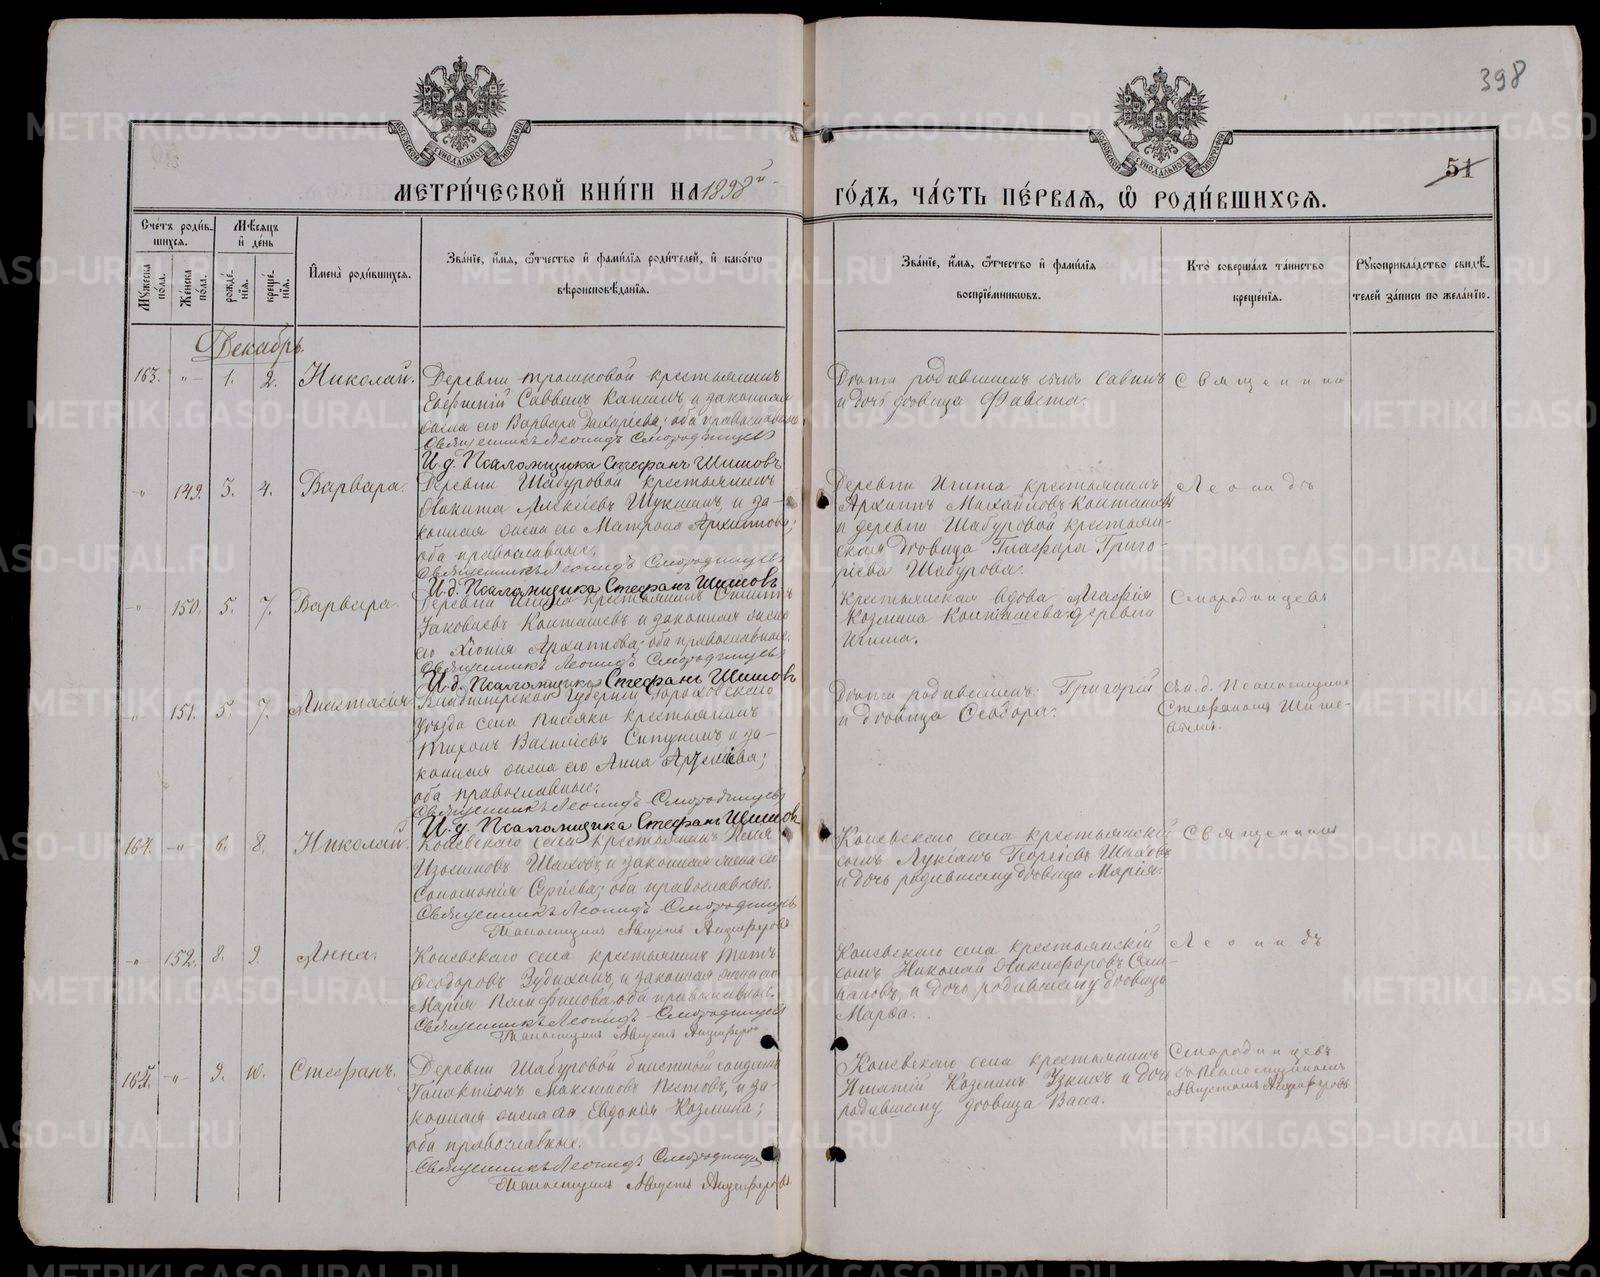 398
51
МЕТРИ́ЧЕСКОЙ КНИ́ГИ НА 1898й
ГО́ДЪ, ЧА́СТЬ ПЕ́РВАЯ, Ѡ҆ РОДИ́ВШИХСЯ.
Сче́тъ роди́в-
шихся.
Мꙋ́жеска по́ла.
Же́нска по́ла.
Мѣ́сяцъ
и҆ де́нь
рожде́-
нїя.
креще́-
нїя.
И҆мена̀ роди́вшихся.
Зва́нїе, и҆́мя, ѻ҆́тчество и҆ фами́лїя роди́телей, и҆ како́гѡ
вѣроисповѣ́данїя.
Зва́нїе, и҆́мя, ѻ҆́тчество и҆ фами́лїя
воспрїе́мниковъ.
Кто̀ соверша́лъ та́инство
креще́нїя.
Рꙋкоприкла́дство свидѣ́-
телей за́писи по жела́нїю.
Декабрь.
163. -"- 1. 2. Николай.
Деревни Трошковой крестьянинъ
Саввинъ и законная
жена его Варвара Захаріева; оба православные.
Священникъ Леонидъ Смородинцевъ
И. д. Псаломщика Стефанъ Шишовъ
Брата родившаго
и дочь дѣвица Фавста.
Священник
-"- 149. 3. 4. Варвара.
Деревни Шабуровой крестьянинъ
Никита Алексіевъ Щукинъ, и за-
конная жена его Матрона Архипова;
оба православные.
Священникъ Леонидъ Смородинцевъ
И. д. Псаломщика Стефанъ Шишовъ
Деревни крестьянинъ
Архиппъ Михайловъ
и деревни Шабуровой крестьян-
ская дѣвица Глафира Григо-
рьева Шабурова.
Леонидъ
-"- 150. 5. 7. Варвара.
Деревни крестьянинъ
Іаковлевъ и законная жена
его Хіонія Архиппова; оба православные.
Священникъ Леонидъ Смородинцевъ
И. д. Псаломщика Стефанъ Шишовъ
Крестьянская вдова Агафія
Козмина деревни
Смородинцевъ
-"- 151. 5. 7. Анастасія
Владимірской губерніи Гороховскаго
уѣзда села крестьянинъ
Тихонъ Василіевъ и за-
конная жена его Анна
оба православные.
Священникъ Леонидъ Смородинцевъ
И. д. Псаломщика Стефанъ Шишовъ
Григорій
и дѣвица Ѳеодора.
съ и. д. Псаломщика
Стефаномъ Шишо-
вымъ.
164. -"- 6. 8. Николай.
Коневскаго села крестьянинъ
Изосимовъ Шаховъ и законная жена его
Соломонія Сергіева; оба православные.
Священникъ Леонидъ Смородинцевъ
Псаломщикъ Августъ Анциферовъ
Коневскаго села крестьянскій
сынъ Лукіанъ Георгіевъ Шаховъ
и дочь родившему дѣвица Марія.
Священникъ
-"- 152. 8. 9. Анна.
Коневскаго села крестьянинъ Титъ
Ѳеодоровъ Зудихинъ, и законная жена его
Марія оба православные.
Священникъ Леонидъ Смородинцевъ
Псаломщикъ Августъ Анциферовъ
Коневскаго села крестьянскій
сынъ Николай Никифоровъ
и дочь родившему дѣвица
Марѳа.
Леонидъ
165. -"- 9. 10. Стефанъ.
Деревни Шабуровой билетный солдатъ
Галактіонъ Максимовъ Пестовъ, и за-
конная жена его Евдокія Козмина;
оба православные.
Священникъ Леонидъ Смородинцевъ
Псаломщикъ Августъ Анциферовъ
Коневскаго села крестьянинъ
Игнатій Козминъ Узкихъ и дочь
родившему дѣвица Васса.
Смородинцевъ
съ Псаломщикомъ
Августомъ Анциферовъ